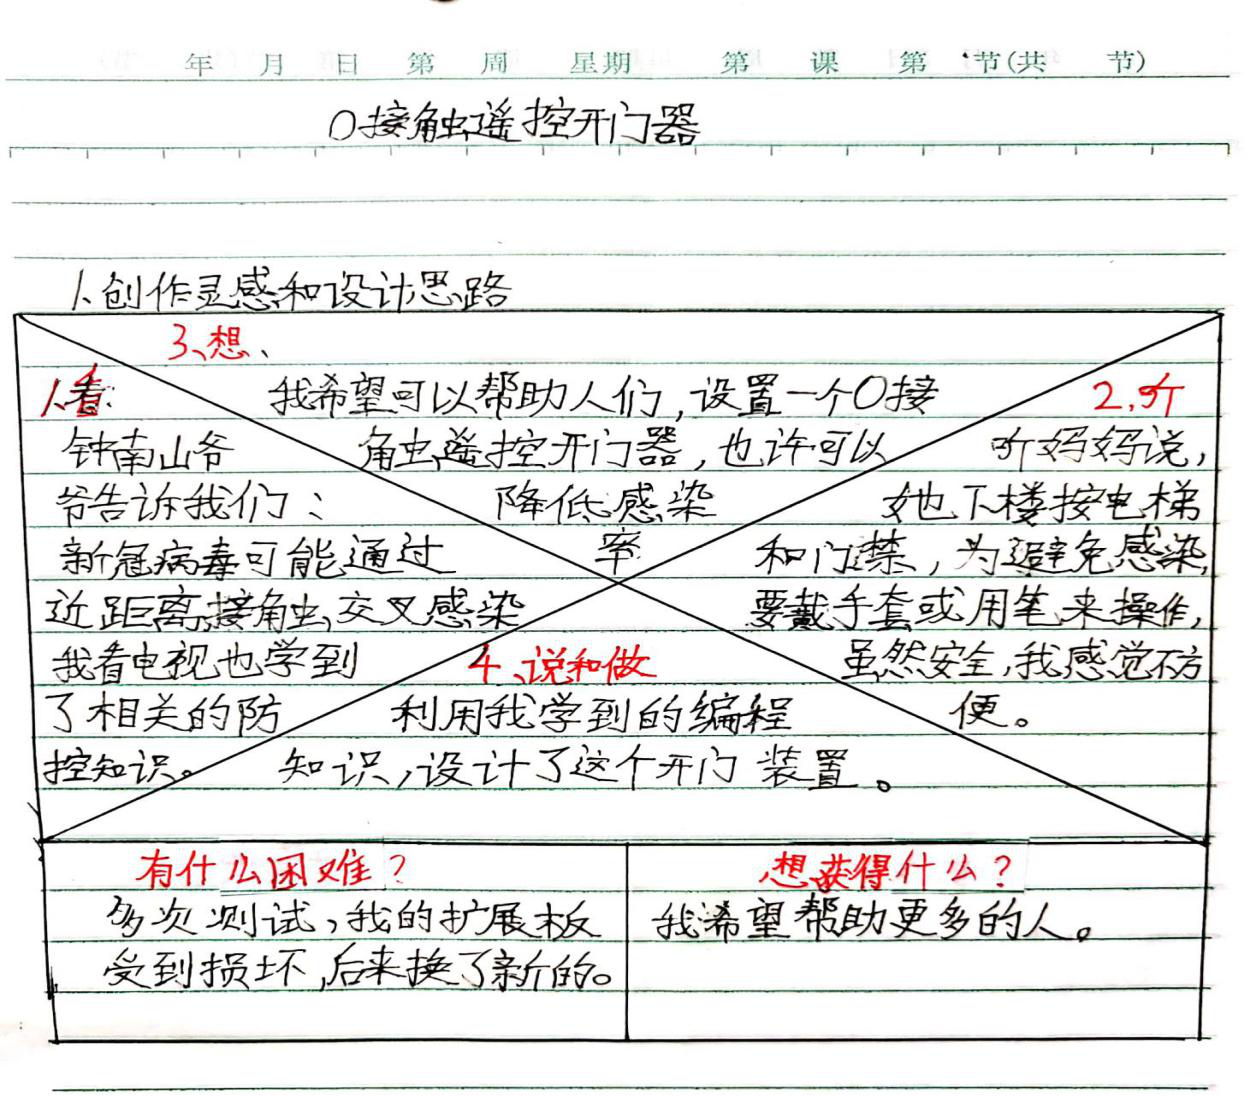 年 月 日 第 周 星期 第 课 第 节(共 节)
0接触遥控开门器
1.创作灵感和设计思路
3、想、
1.看:
钟南山爷
爷告诉我们:
新冠病毒可能通过
近距离接触,交叉感染
我看电视也学到
了相关的防
控知识。
我希望可以帮助人们,设置一个0接
触遥控开门器,也许可以
降低感染
率
2.听
听妈妈说,
她下楼按电梯
和门禁,为避免感染,
要戴手套或用笔来操作,
虽然安全,我感觉不方
便。
4、说和做
利用我学到的编程
知识,设计了这个开门装置。
有什么困难?
多次测试,我的扩展板
受到损坏,后来换了新的。
想获得什么?
我希望帮助更多的人。